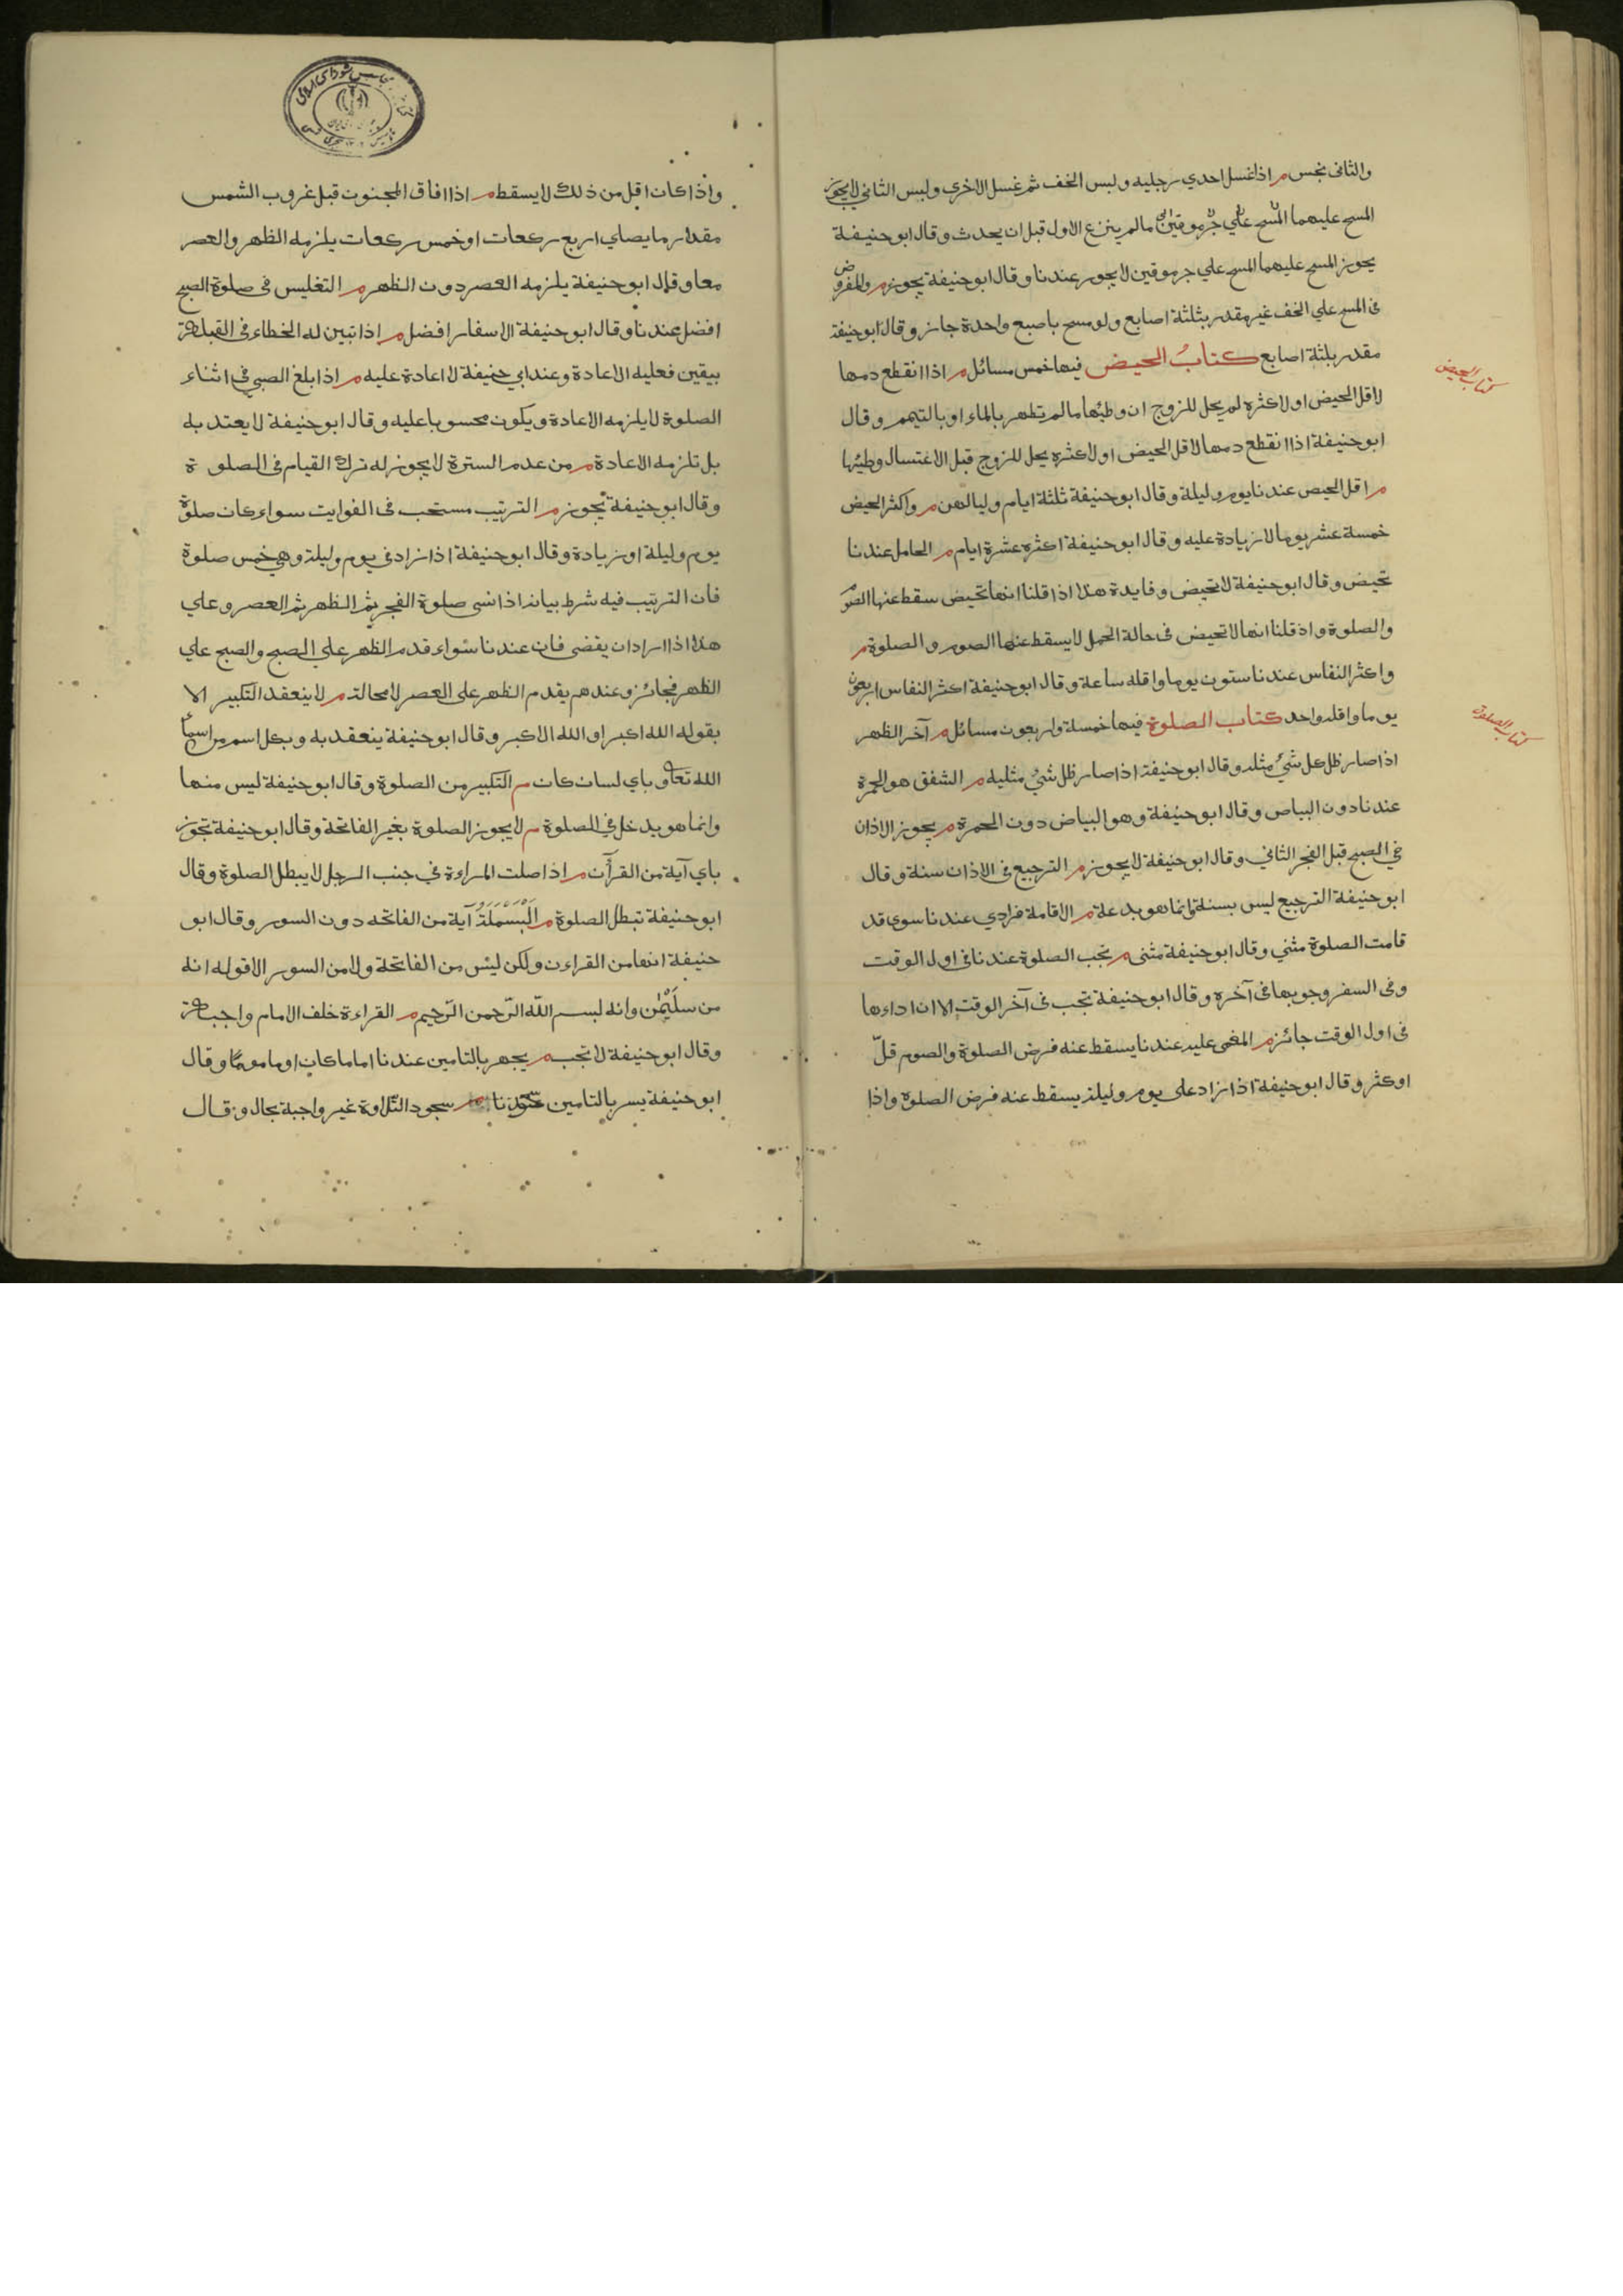 والثانى نجس م اذا غسل احدي رجليه ولبس الخف ثم غسل الاخرى ولبس الثاني لا يجوز
المسح عليهما المسح علي جرموقين ما لم ينزع الاول قبل ان يحدث وقال ابو حنيفة
يجوز المسح عليهما المسح علي جرموقين لا يجوز عندنا وقال ابو حنيفة يجوز م والمفروض
فى المسح علي الخف غير مقدر بثلثة اصابع ولو مسح باصبع واحدة جاز وقال ابو حنيفة
مقدر بلثة اصابع كتابُ الحيض فيها خمس مسائل م اذا انقطع دمها
كتاب الحيض
لاقل الحيض او لاكثره لم يحل للزوج ان وطيُها ما لم تطهر بالماء او بالتيمم وقال
ابو حنيفة اذا انقطع دمها لاقل الحيض او لاكثره يحل للزوج قبل الاغتسال وطيُها
م اقل الحيض عندنا يوم وليلة وقال ابو حنيفة ثلثة ايام وليالهن م واكثر الحيض
خمسة عشر يوما لا زيادة عليه وقال ابو حنيفة اكثره عشرة ايام م الحامل عندنا
تحيض وقال ابو حنيفة لا تحيض وفايدة هذا اذا قلنا انها تحيض سقط عنها الصوم
والصلوة واذ قلنا انها لا تحيض فى حالة الحمل لا يسقط عنها الصوم والصلوة م
واكثر النفاس عندنا ستون يوما واقله ساعة وقال ابو حنيفة اكثر النفاس اربعون
يوما واقله واحد كتاب الصلوة فيها خمسة واربعون مسائل م آخر الظهر
كتاب الصلوة
اذا صار ظل كل شئ مثله وقال ابو حنيفة اذا صار ظل شئ مثليه م الشفق هو الحمرة
عندنا دون البياض وقال ابو حنيفة وهو البياض دون الحمرة م يجوز الاذان
في الصبح قبل الفجر الثاني وقال ابو حنيفة لا يجوز م الترجيع فى الاذان سنة وقال
ابو حنيفة الترجيع ليس بسنة وانما هو بدعة م الاقامة فرادي عندنا سوى قد
قامت الصلوة مثني وقال ابو حنيفة مثنى م تجب الصلوة عندنا فى اول الوقت
وفى السفر وجوبها فى آخره وقال ابو حنيفة تجب فى آخر الوقت الا ان اداءها
فى اول الوقت جائز م المغمى عليه عندنا يسقط عنه فرض الصلوة والصوم قلّ
او كثر وقال ابو حنيفة اذا زاد على يوم وليلة يسقط عنه فرض الصلوة واذا
واذا كان اقل من ذلك لا يسقط م اذا افاق المجنون قبل غروب الشمس
مقدار ما يصلي اربع ركعات او خمس ركعات يلزمه الظهر والعصر
معا وقال ابو حنيفة يلزمه العصر دون الظهر م التغليس فى صلوة الصبح
افضل عندنا وقال ابو حنيفة الاسفار افضل م اذا تبين له الخطاء فى القبلة
بيقين فعليه الاعادة وعند ابي حنيفة لا اعادة عليه م اذا بلغ الصبي فى اثناء
الصلوة لا يلزمه الاعادة ويكون محسوبا عليه وقال ابو حنيفة لا يعتد به
بل تلزمه الاعادة م من عدم السترة لا يجوز له ترك القيام فى الصلوة
وقال ابو حنيفة يجوز م الترتيب مستحب فى الفوايت سواء كان صلوة
يوم وليلة او زيادة وقال ابو حنيفة اذا زاد فى يوم وليلة وهي خمس صلوة
فان الترتيب فيه شرط بيانه اذا نسى صلوة الفجر ثم الظهر ثم العصر وعلي
هذا اذا اراد ان يقضى فان عندنا سواء قدم الظهر علي الصبح والصبح علي
الظهر فجائز وعندهم يقدم الظهر على العصر لا محالة م لا ينعقد التكبير الا
بقوله الله اكبر او الله الاكبر وقال ابو حنيفة ينعقد به وبكل اسم من اسماء
الله تعالى وباي لسان كان م التكبير من الصلوة وقال ابو حنيفة ليس منها
وانما هو يدخل في الصلوة م لا يجوز الصلوة بغير الفاتحة وقال ابو حنيفة تجوز
باي آية من القرآن م اذا صلت المراءة في جنب الرجل لا يبطل الصلوة وقال
ابو حنيفة تبطل الصلوة م اَلْبَسْمَلَةُ آية من الفاتحه دون السور وقال ابو
حنيفة انها من القراءن ولكن ليس من الفاتحة ولا من السور الا قوله انه
من سليمن وانه لبسم اللّه الرّحمن الرّحيم م القراءة خلف الامام واجبة
وقال ابو حنيفة لا تجب م يجهر بالتامين عندنا اماما كان او ماموما وقال
ابو حنيفة يسر بالتامين م سجود التلاوة غير واجبة بحال وقال